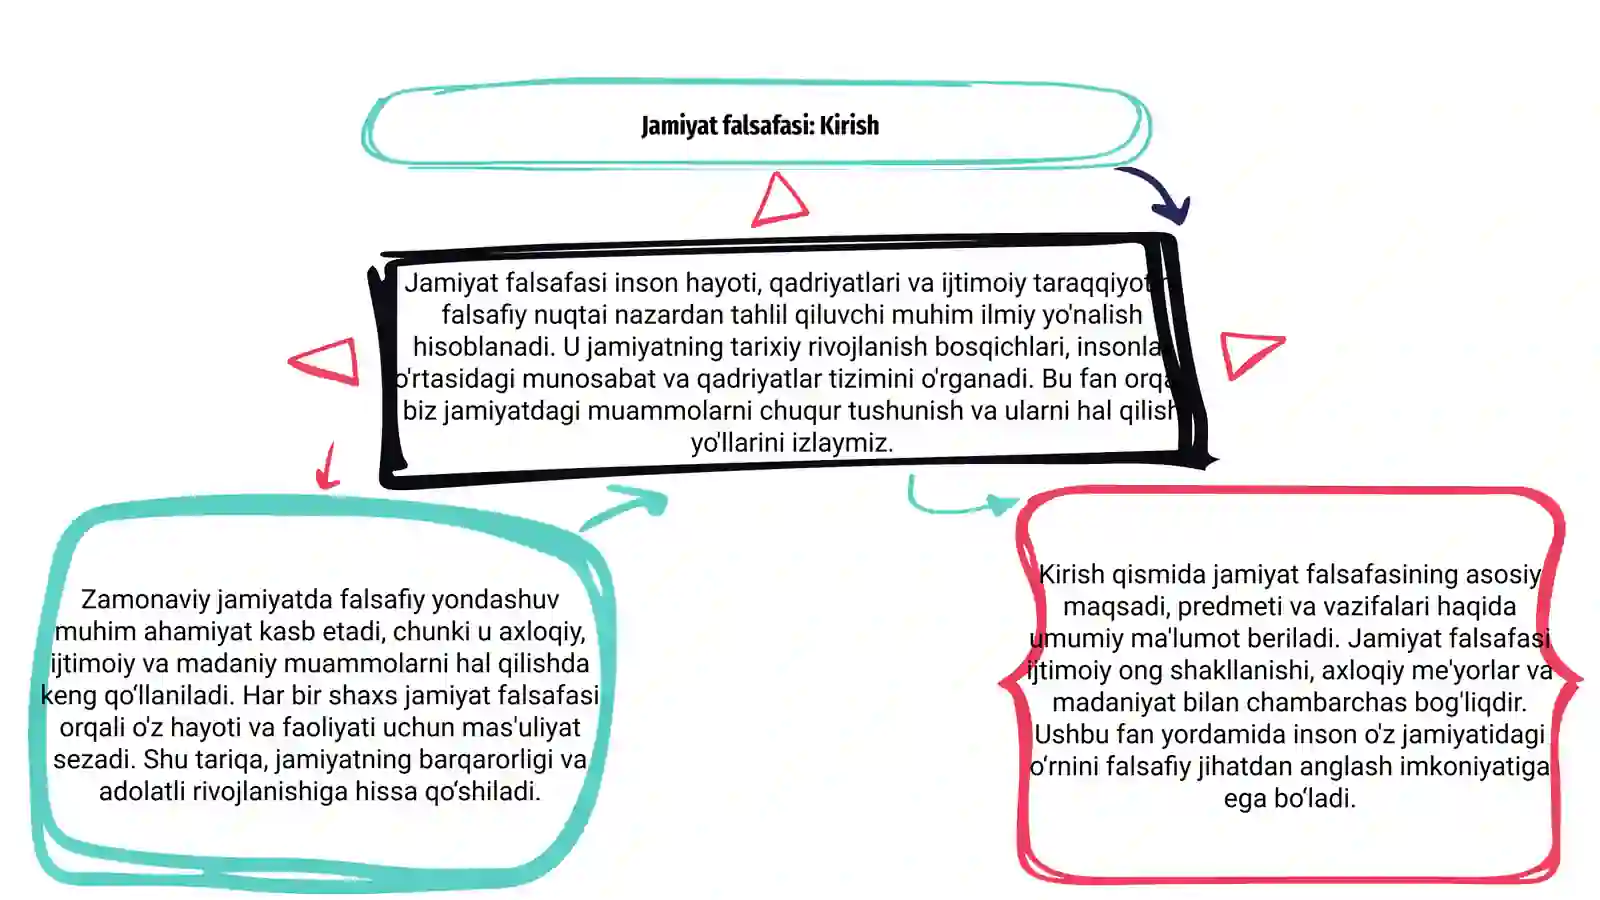 Jamiyat falsafasi: Kirish
Jamiyat falsafasi inson hayoti, qadriyatlari va ijtimoiy
falsafiy nuqtai nazardan tahlil qiluvchi muhim ilmiy yo'nalish
hisoblanadi. U jamiyatning tarixiy rivojlanish bosqichlari, insonlar
o'rtasidagi munosabat va qadriyatlar tizimini o'rganadi. Bu fan orqali
biz jamiyatdagi muammolarni chuqur tushunish va ularni hal qilish
yo'llarini izlaymiz.
Zamonaviy jamiyatda falsafiy yondashuv
muhim ahamiyat kasb etadi, chunki u axloqiy,
ijtimoiy va madaniy muammolarni hal qilishda
keng qo‘llaniladi. Har bir shaxs jamiyat falsafasi
orqali o'z hayoti va faoliyati uchun mas'uliyat
sezadi. Shu tariqa, jamiyatning barqarorligi va
adolatli rivojlanishiga hissa qo‘shiladi.
Kirish qismida jamiyat falsafasining asosiy
maqsadi, predmeti va vazifalari haqida
umumiy ma'lumot beriladi. Jamiyat falsafasi
ijtimoiy ong shakllanishi, axloqiy me'yorlar va
madaniyat bilan chambarchas bog'liqdir.
Ushbu fan yordamida inson o'z jamiyatidagi
o‘rnini falsafiy jihatdan anglash imkoniyatiga
ega bo‘ladi.